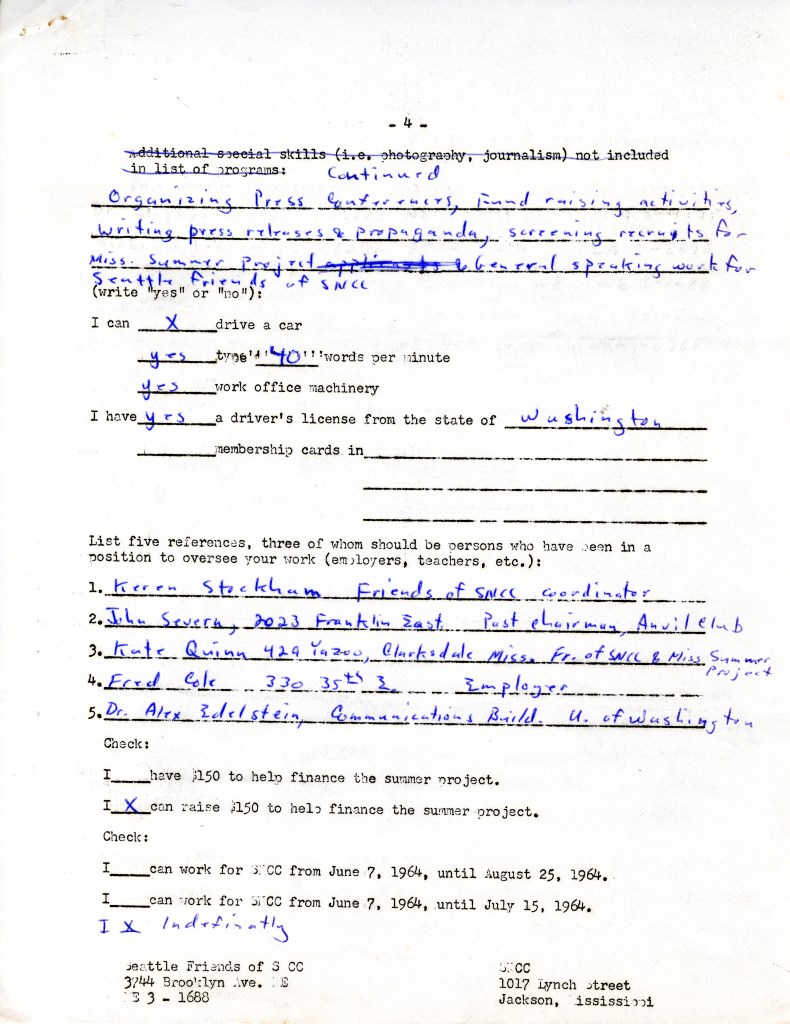 - 4 -
Additional special skills (i.e. photography, journalism) not included
in list of programs: Continued
Organizing Press Conferences, Fund raising activities,
Writing press releases & propaganda, screening recruits for
Miss. Summer Project applicants & General speaking work for
Seattle Friends of SNCC
(write "yes" or "no"):
I can X drive a car
yes type "40" words per minute
yes work office machinery
I have yes a driver's license from the state of Washington
membership cards in
List five references, three of whom should be persons who have been in a
position to oversee your work (employers, teachers, etc.):
1. Keren Stockham Friends of SNCC coordinator
2. John Severn, 2023 Franklin East Past chairman, Anvil Club
3. Kate Quinn 429 Yazoo, Clarksdale Miss. Fr. of SNCC & Miss Summer Project
4. Fred Cole 330 35th E. Employer
5. Dr. Alex Edelstein, Communications Build. U. of Washington
Check:
I have $150 to help finance the summer project.
I X can raise $150 to help finance the summer project.
Check:
I can work for SNCC from June 7, 1964, until August 25, 1964.
I can work for SNCC from June 7, 1964, until July 15, 1964.
I X Indefinatly
Seattle Friends of S CC
3744 Brooklyn Ave. NE
3 - 1688
SNCC
1017 Lynch Street
Jackson, Mississippi